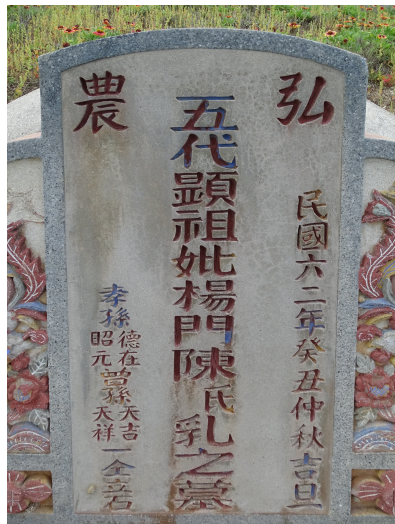 弘農
民國六二年癸丑仲秋吉旦
五代顯祖妣楊門陳氏乳之墓
孝孫德在昭元曾孫天吉天祥一仝立石